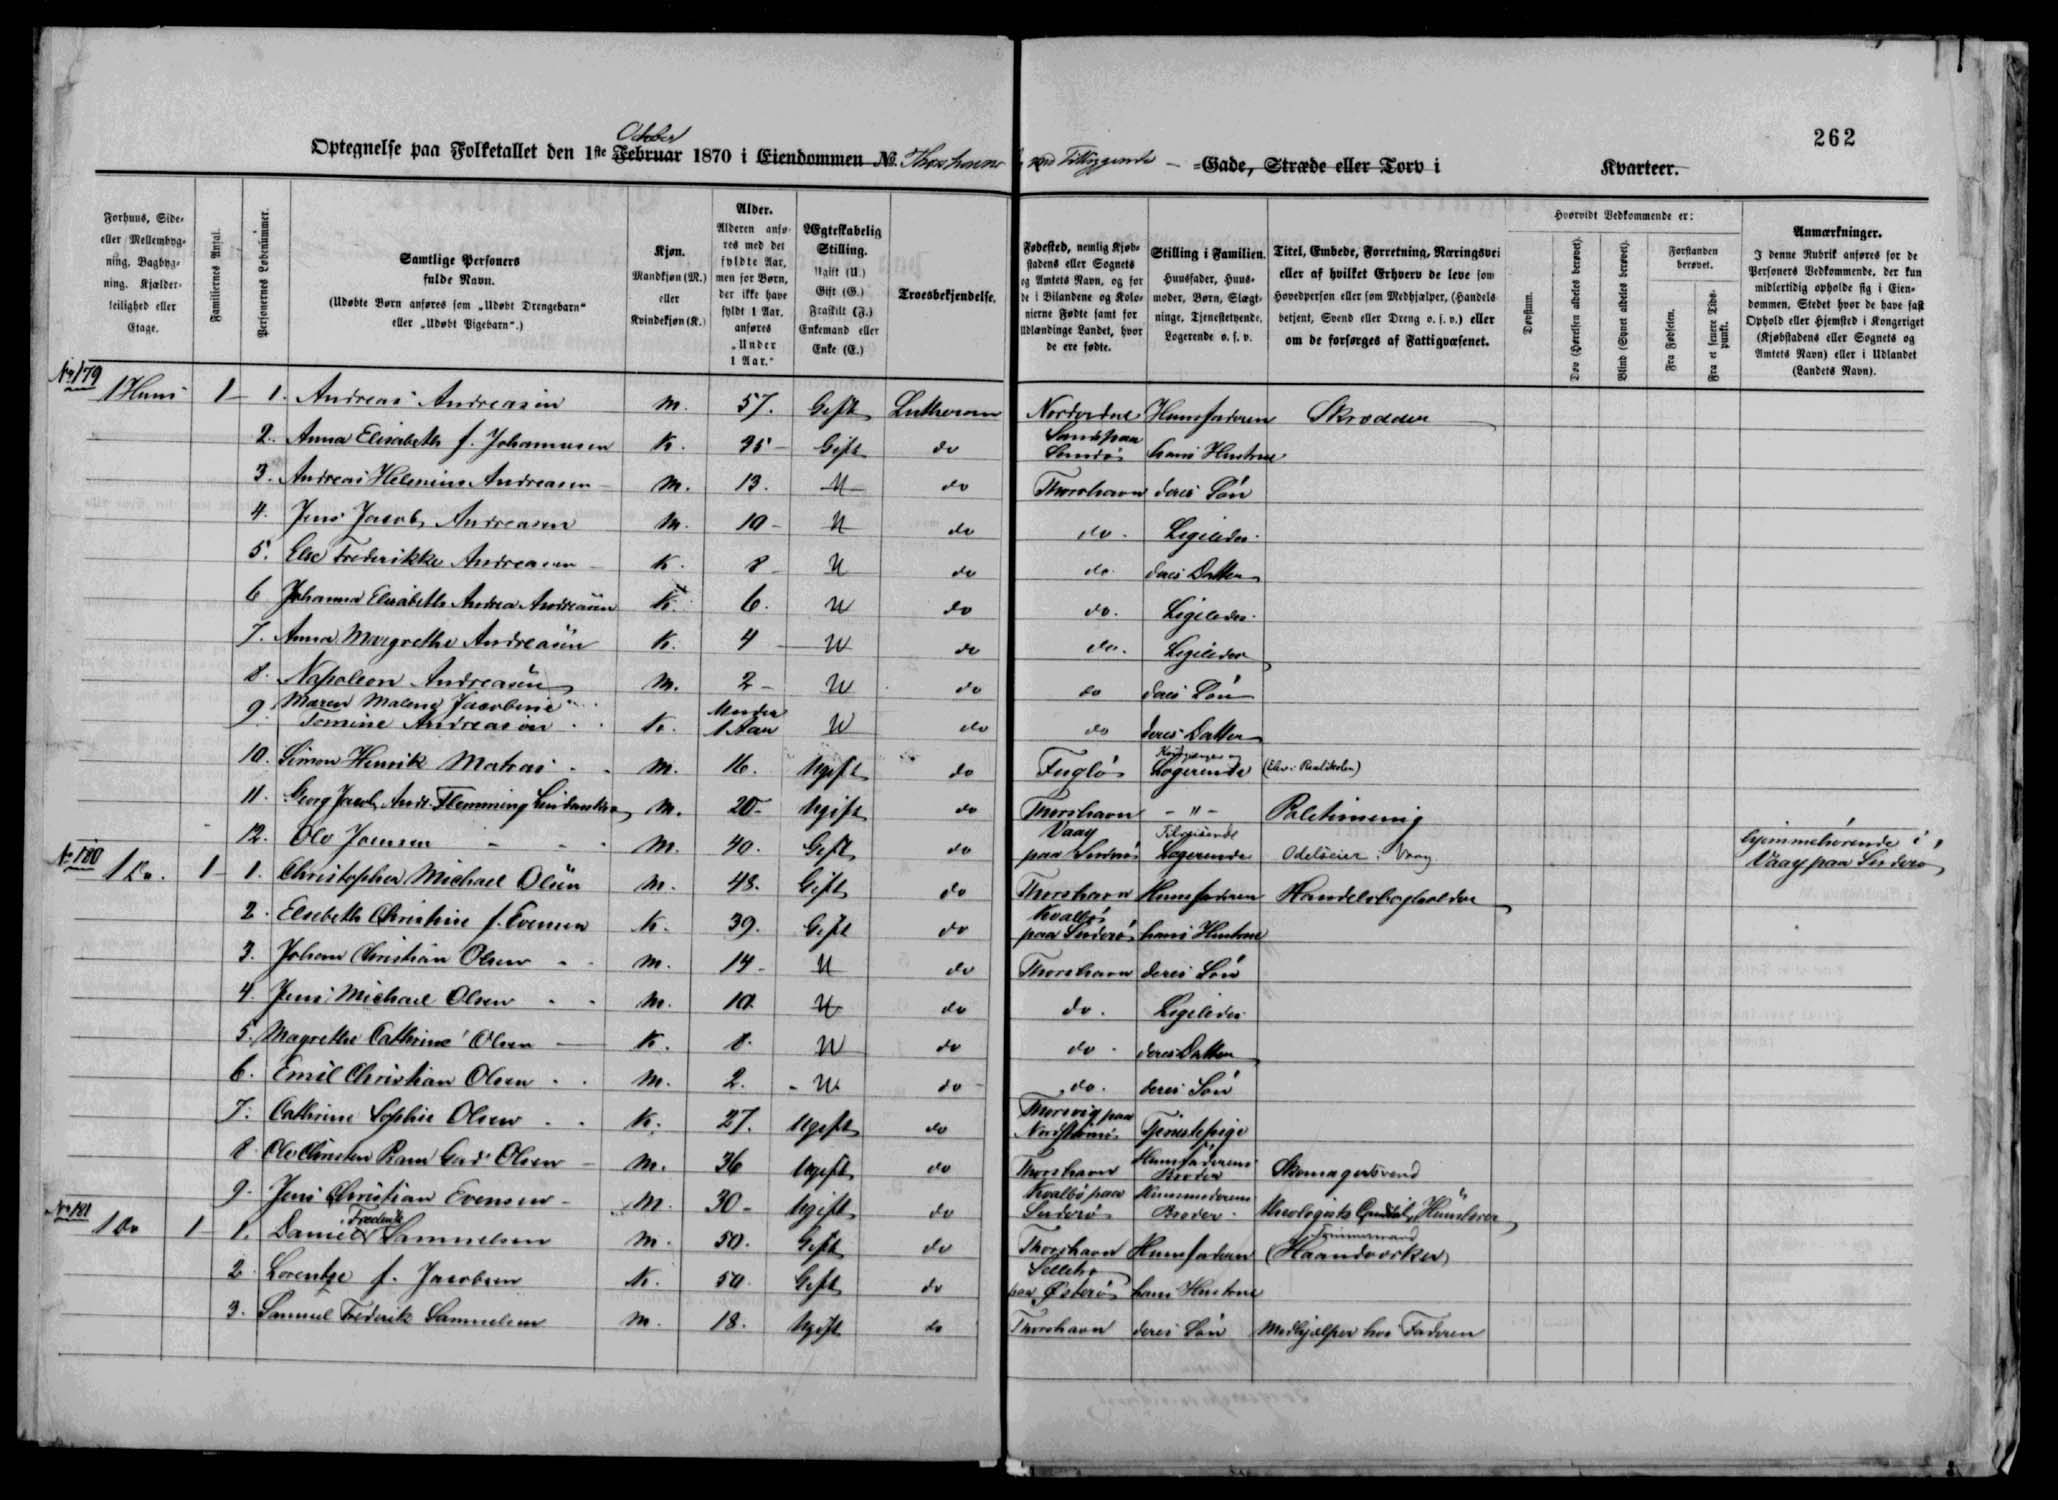 262
October
Optegnelse paa Folketallet den 1ste Februar 1870 i Eiendommen No Thorshavn med Tilliggende -Gade, Stræde eller Torv i Kvarteer.
Forhuus, Side- eller Mellembyg- ning, Bagbyg- ning, Kjælder- leilighed eller Etage.
Familiernes Antal.
Personernes Løbenummer.
Samtlige Personers fulde Navn.
(Udøbte Børn anføres som „Udøbt Drengebarn“ eller „Udøbt Pigebarn“.)
Kjøn.
Mandkjøn (M.) eller Kvindekjøn (K.)
Alder.
Alderen anfø- res med det fyldte Aar, men for Børn, der ikke have fyldt 1 Aar, anføres „Under 1 Aar.“
Ægteskabelig Stilling.
Ugift (U.) Gift (G.) Fraskilt (F.) Enkemand eller Enke (E.)
Troesbekjendelse.
Fødested, nemlig Kjøb- stadens eller Sognets og Amtets Navn, og for de i Bilandene og Kolo- nierne Fødte samt for Udlændinge Landet, hvor de ere fødte.
Stilling i Familien.
Huusfader, Huus- moder, Børn, Slægt- ninge, Tjenestetyende, Logerende o. s. v.
Titel, Embede, Forretning, Næringsvei eller af hvilket Erhverv de leve som Hovedperson eller som Medhjælper, (Handels betjent, Svend eller Dreng o. s. v.) eller om de forsørges af Fattigvæsenet.
Hvorvidt Vedkommende er:
Døvstum.
Døv (Hørelsen aldeles berøvet).
Blind (Synet aldeles berøvet).
Forstanden berøvet.
Fra Fødselen.
Fra et senere Tids- punkt.
Anmærkninger.
I denne Rubrik anføres for de Personers Vedkommende, der kun midlertidig opholde sig i Eien- dommen, Stedet hvor de have fast Ophold eller Hjemsted i Kongeriget (Kjøbstadens eller Sognets og Amtets Navn) eller i Udlandet (Landets Navn).
No 179
1 Huus 1 1. Andreas Andreasen M. 57. Gift Lutheran Norderdal Huusfaderen Skrædder
2. Anna Elisabeth f. Johannesen K. 35 Gift do Sand paa Sandø hans Hustrue
3. Andreas Helenius Andreasen M. 13. U do Thorshavn deres Søn
4. Jens Jacob Andreasen M. 10 U do do. Ligeledes
5. Else Frederikke Andreasen K. 8 U do do. deres Datter
6. Johanna Elisabeth Andrea Andreasen K. 6. U do do. Ligeledes
7. Anna Margrethe Andreasen K. 4 U do do. Ligeledes
8. Napoleon Andreasen M. 2 U do do deres Søn
9. Maren Malene Jacobine Jomine Andreasen K. Under 1 Aar U do do deres Datter
10. Simon Henrik Matras M. 16. Ugift do Fuglø Logerende (Elev i Realskolen)
11. Georg Jacob Andr. Flemming M. 20 Ugift do Thorshavn - " -
12. Ole Joensen M. 40. Gift do Vaag paa Suderø Tilreisende Logerende Odelseier i Vaag hjemmehørende i Vaag paa Suderø
No 180
1 Do. 1 1. Christopher Michael Olsen M. 48. Gift do Thorshavn Huusfaderen Handelsbogholder
2. Elsebeth Christine f. Evensen K. 39. Gift do Kvalbø paa Suderø hans Hustrue
3. Johan Christian Olsen M. 14 U do Thorshavn deres Søn
4. Jens Michael Olsen M. 10. U do do. Ligeledes
5. Magrethe Cathrine Olsen K. 8. U do do deres Datter
6. Emil Christian Olsen M. 2. U do do. deres Søn
7. Cathrine Sophie Olsen K. 27. Ugift do Thorsvig paa Tjenestepige
8. Ole Christen Olsen M. 36 Ugift do Thorshavn Huusfaderens Broder Skomagersvend
9. Jens Christian Evensen M. 30 Ugift do Kvalbø paa Suderø Huusmoderens Broder theologisk Candidat, Huuslærer
No 181
1 Do 1 1. Daniel Frederik Samuelsen M. 50. Gift do Thorshavn Huusfaderen Tømmermand (Haandværker)
2. Lorentze f. Jacobsen K. 50. Gift do paa Østerø hans Hustrue
3. Samuel Frederik Samuelsen M. 18. Ugift do Thorshavn deres Søn Medhjælper hos Faderen